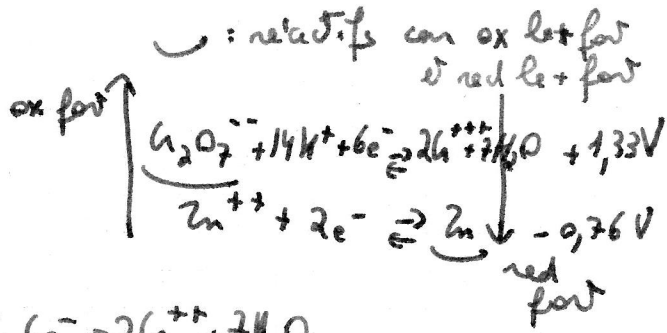 : réactifs car ox le + fort
et red le + fort
ox fort
Cr₂O₇⁻⁻ + 14H⁺ + 6e⁻ ⇌ 2Cr⁺⁺⁺ + 7H₂O + 1,33V
Zn⁺⁺ + 2e⁻ ⇌ Zn - 0,76 V
red
fort
6e⁻ → 2Cr⁺⁺⁺ + 7H₂O